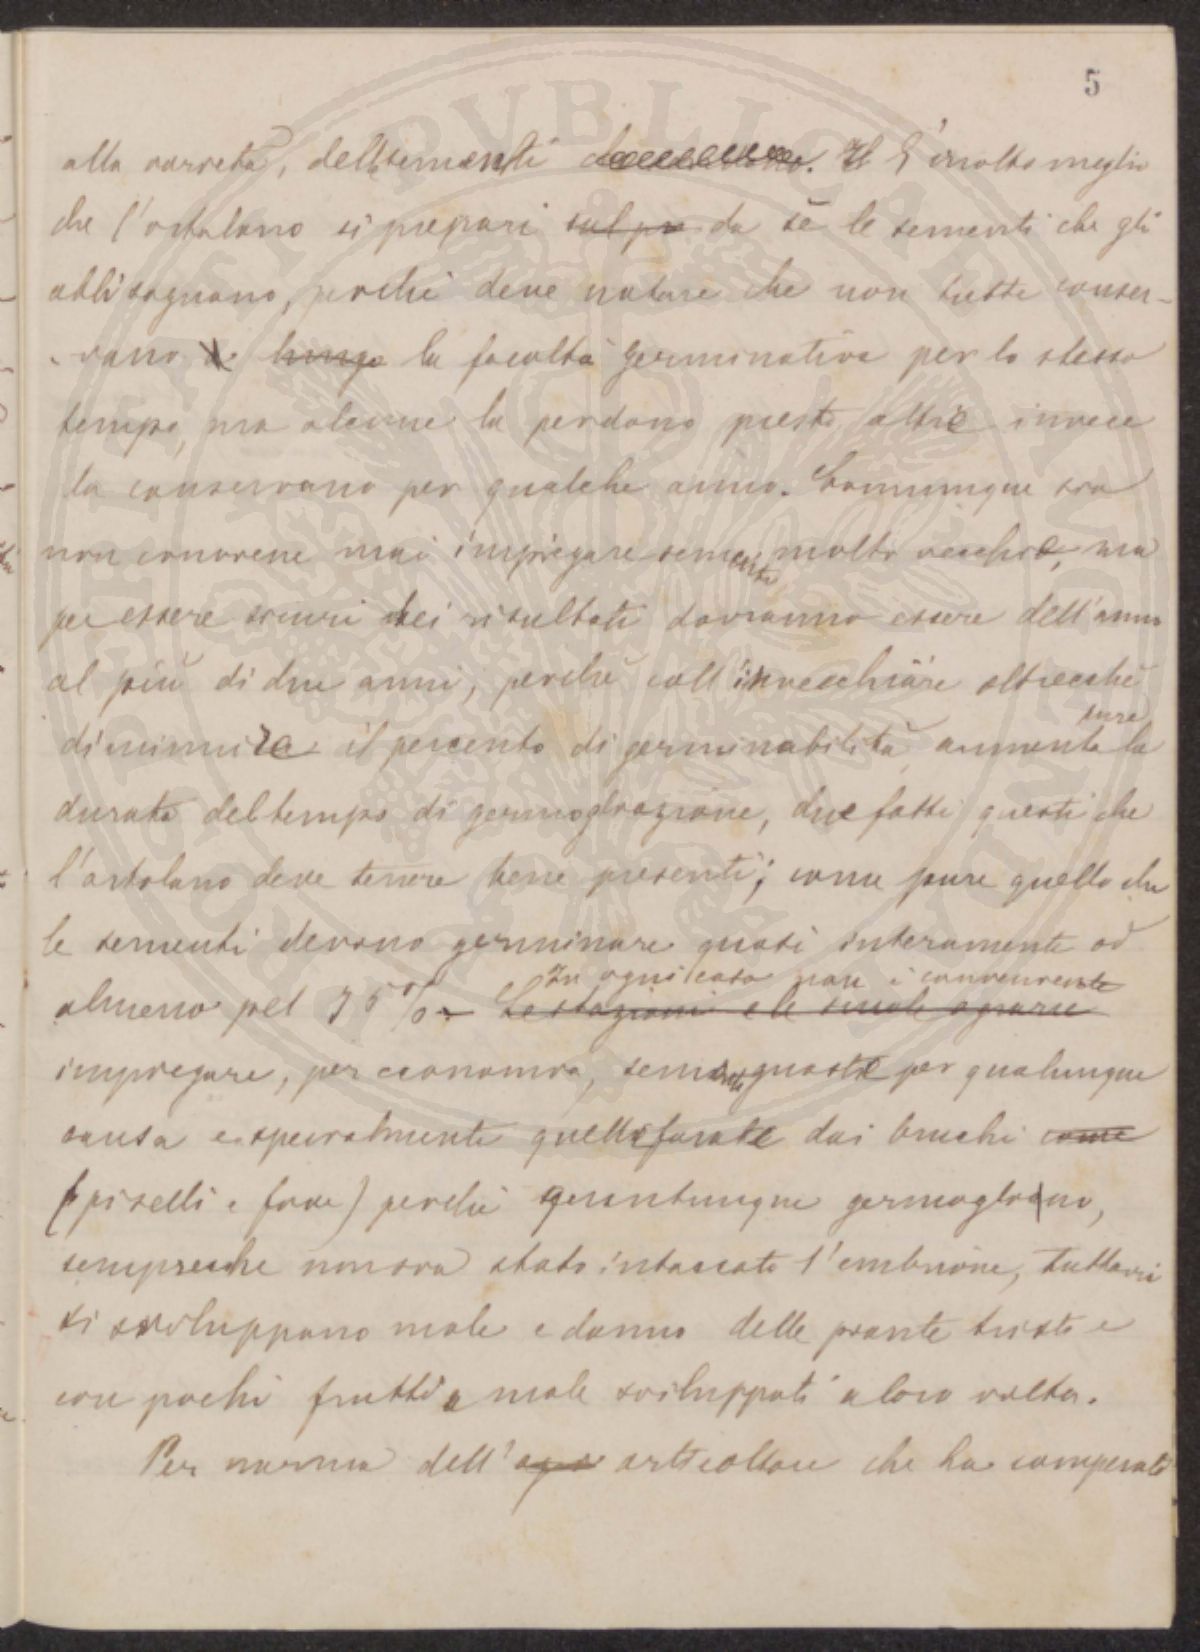 5
alla varietà, delle sementi. È molto meglio
che l'ortolano si prepari sul po da sè le sementi che gli
abbisognano, perchè deve notare che non tutte conser-
-vano a lungo la facoltà germinativa per lo stesso
tempo, ma alcune la perdono presto altre invece
la conservano per qualche anno. Comunque sia
non conviene mai impiegare sementi molto vecchie, ma
per essere sicuri dei risultati dovranno essere dell'anno
al più di due anni, perchè coll'invecchiare oltrecchè
diminuire il percento di germinabilità, aumenta pure la
durata del tempo di germogliazione, due fatti questi che
l'ortolano deve tenere bene presenti; come pure quello che
le sementi devono germinare quasi interamente od
In ogni caso non è conveniente
almeno pel 75%. Le stazioni e le scuole agrarie
impiegare, per economia, sementi guaste per qualunque
causa e specialmente quelle forate dai bruchi come
(piselli e fave) perchè quantunque germogliano,
sempreche non sia stato intaccato l'embrione, tuttavia
si sviluppano male e danno delle piante triste e
con pochi frutti e male sviluppati a loro volta.
Per norma dell' orticoltore che ha comperato